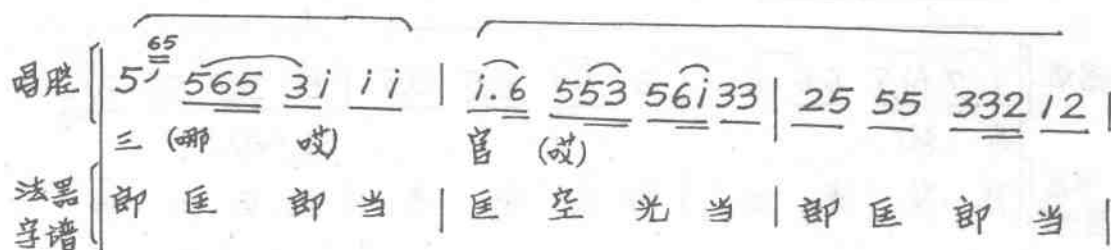 唱腔 5 65 565 3i i i | i.6 553 56i 33 | 25 55 332 12 |
三 (哪 哎) 官 (哎)
法器字谱 郎 匡 郎 当 | 匡 空 光 当 | 郎 匡 郎 当 |